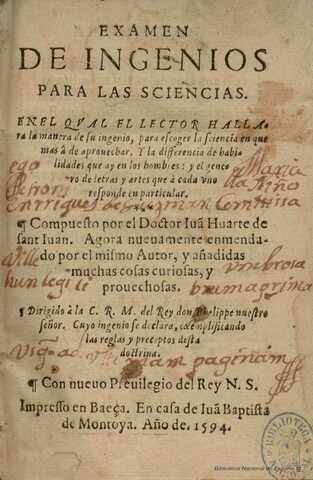 EXAMEN
DE INGENIOS
PARA LAS SCIENCIAS.
EN EL QVAL EL LECTOR HALLA-
ra la manera de su ingenio, para escoger la sciencia en que
mas à de aprouechar. Y la differencia de habi-
lidades que ay en los hombres: y el gene-
ro de letras y artes que à cada vno
responde en particular.
¶ Compuesto por el Doctor Iuã Huarte de
sant Iuan. Agora nueuamente enmenda-
do por el mismo Autor, y añadidas
muchas cosas curiosas, y
prouechosas.
¶ Dirigido à la C. R. M. del Rey don Phelippe nuestro
señor. Cuyo ingenio se declara, exẽplificando
las reglas y preceptos desta
doctrina.
¶ Con nueuo Preuilegio del Rey N. S.
Impresso en Baeça. En casa de Iuã Baptista
de Montoya. Año de. 1594.
ego Maria
Enrriques de Guzman
hunc legi
paginam
Biblioteca Nacional de España